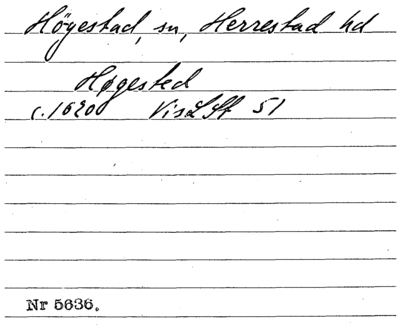 Högestad, sn, Herrestad hd
Høgested
c. 1620 VisLSt 51
Nr 5636.